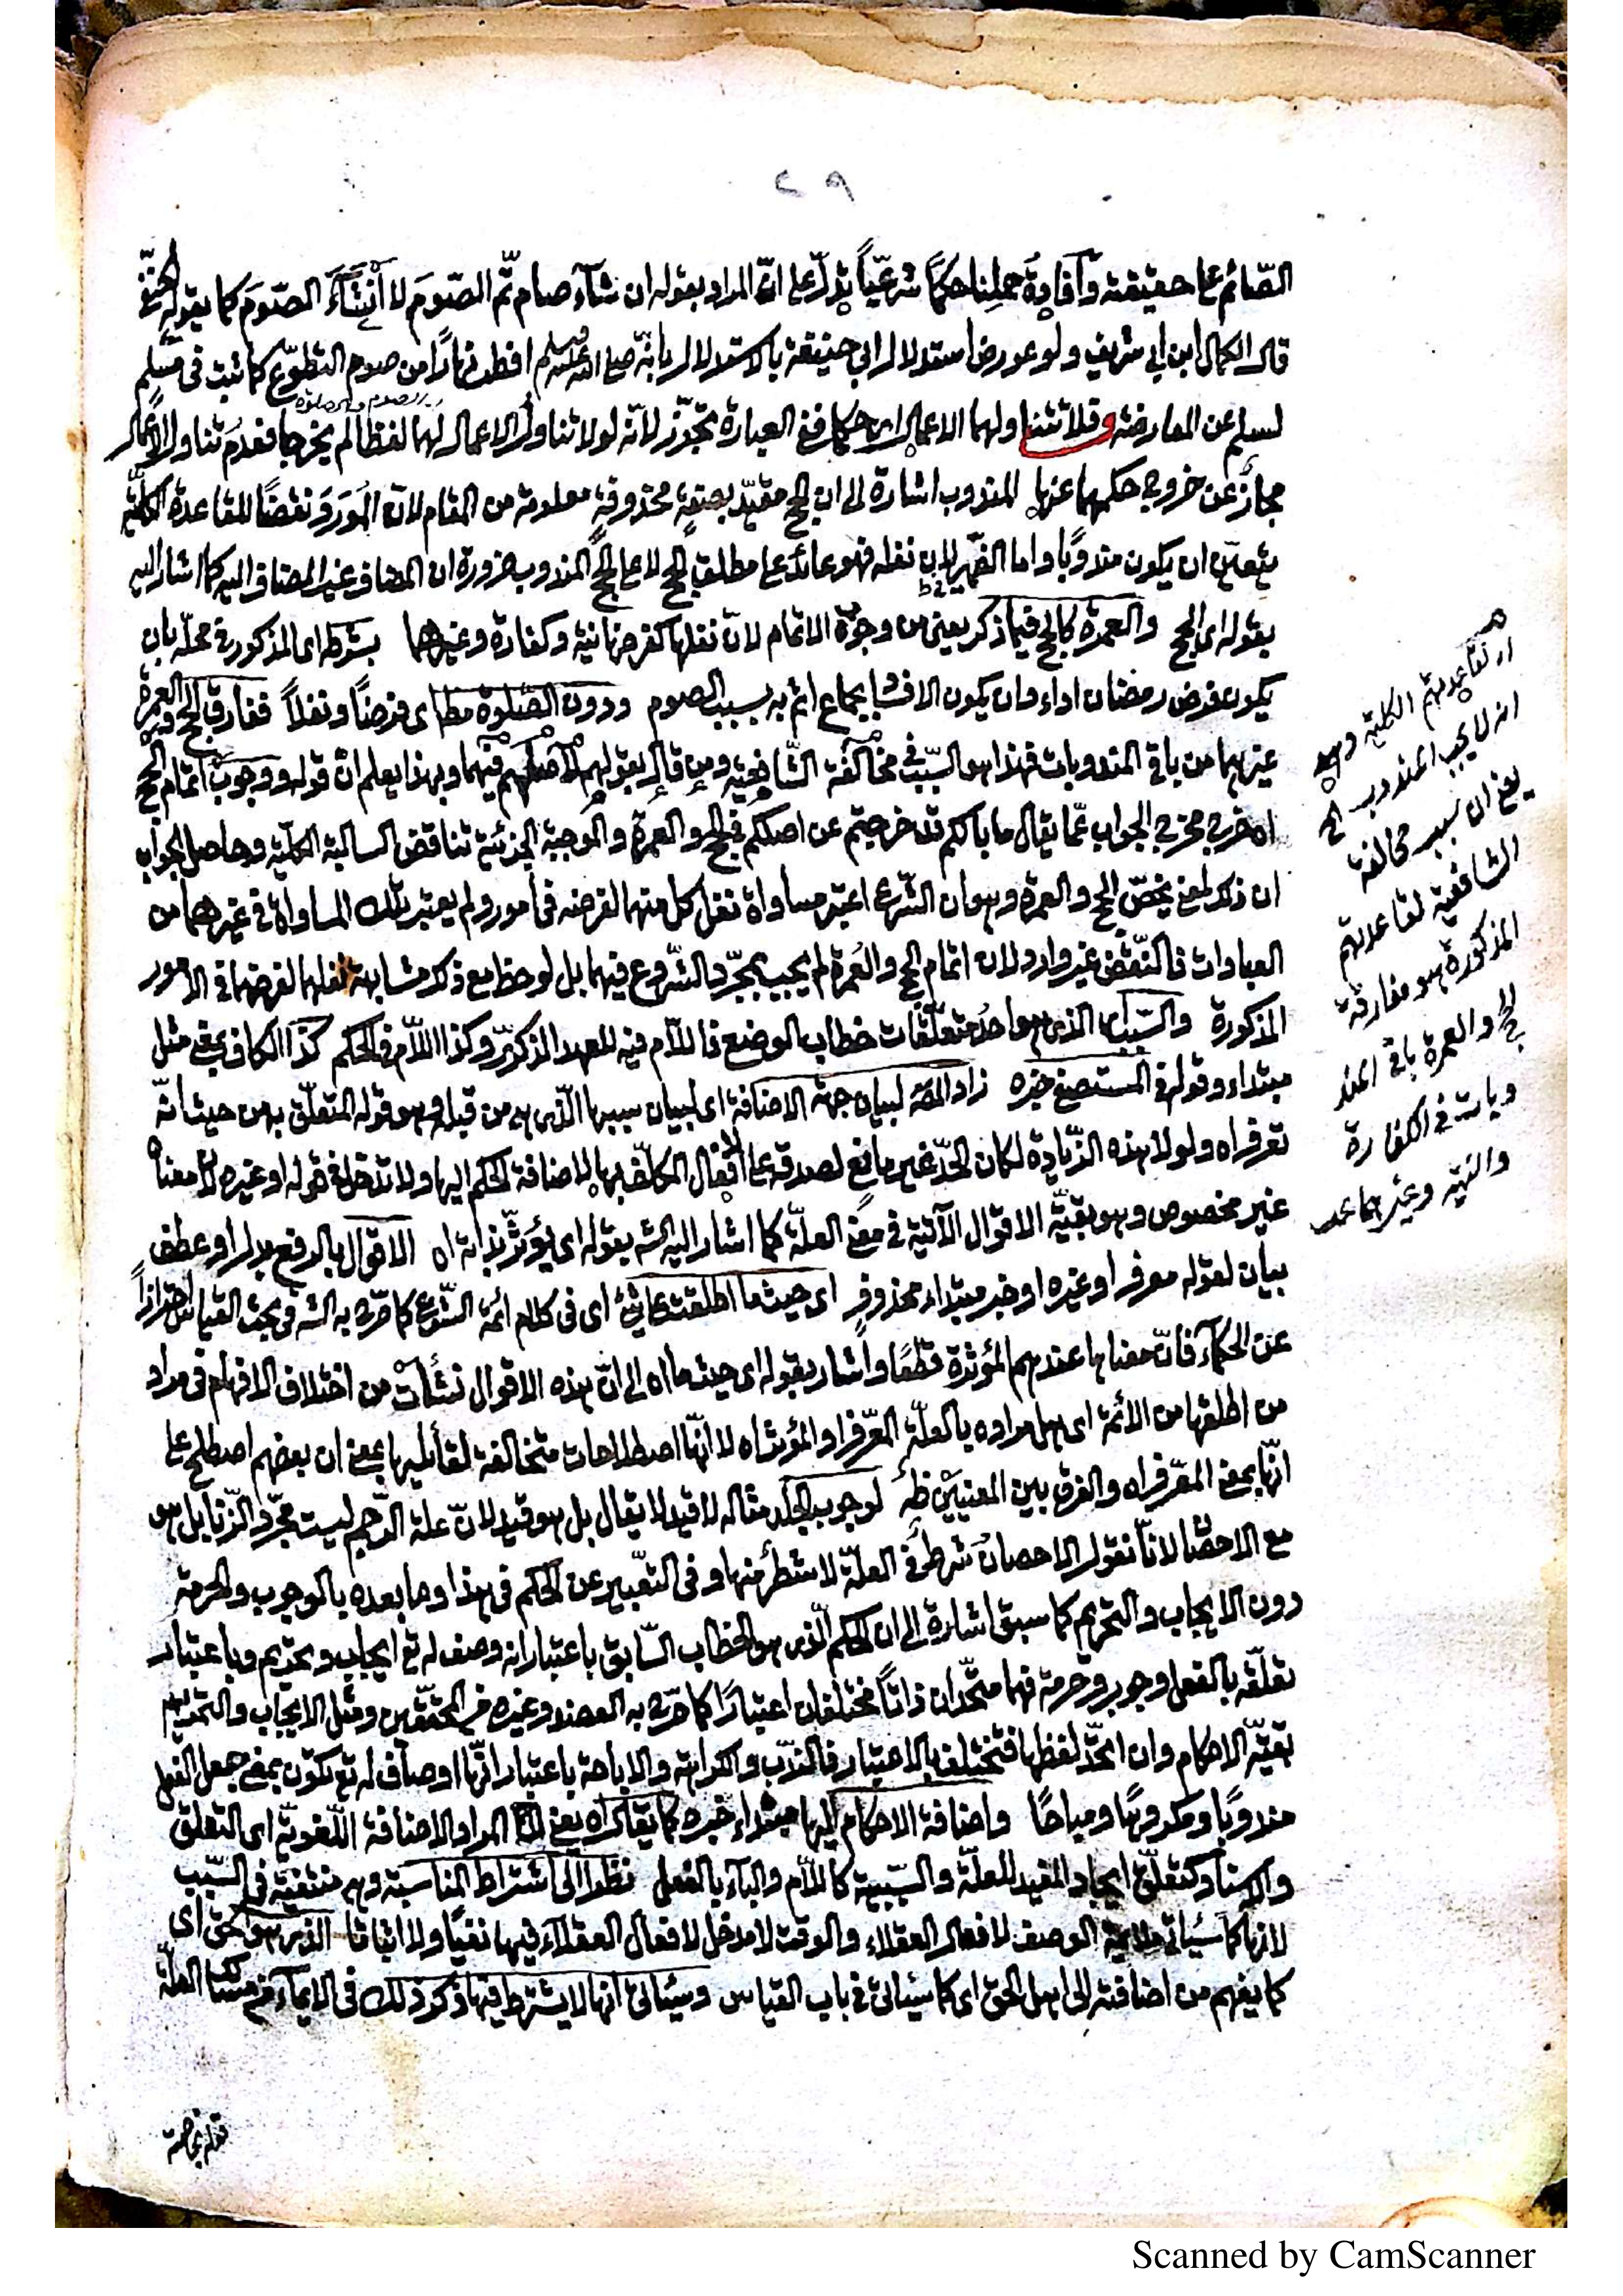 ٢٩
الصّائم على حقيقته وافادة حملنا حكمًا شرعيّاً يدلّ على انّ المراد بقوله ان شآء صام تمّ الصّوم لا أنشأَ الصّوم كما يقوله الحنفي
قال الكمال ابن ابي شريف ولو عورض استدلال ابي حنيفة بالاستدلال بانّه صلى الله عليه وسلم افطر نهارًا من صوم التطوّع كما ثبت في مسلم
لسلم عن المعارضة وقلا تتناولهما الاعمال اى حكما ففى العبارة تجوّز لانّه لولا تناول الاعمال لهما لفظا لم يخرجا فعدم تناول الاعمال
اى الصوم والصلوة
مجاز عن خروج حكمهما عنها المندوب اشارة الى ان الحج مقيّد بصفة محذوفة معلومة من المقام لان المورَد نقضًا للقاعدة الكلّيّة
يتعيّن ان يكون مندوبًا واما الضمير لان نفله فهو عائد على مطلق الحج لا على الحج المندوب ضرورة ان المضاف غير المضاف اليه كما اشار اليه
بقوله اى الحج والعمرة كالحج فيما ذكر يعنى من وجوب الاتمام لانّ نفلها كفرضها نية وكفارة وغيرهما بشرطه اى المذكور فى محلّه بان
يكون فرض رمضان اداء وان يكون الافساد بجماع اثم به بسبب الصوم ودون الصّلوة مط اى فرضًا ونفلاً ففارق الحج والعمرة
غيرهما من باقى المندوبات فهذا هو السّبب فى مخالفة الشّافعيّة ومن قال بقولهم لاصلهم فيهما وبهذا يعلم انّ قوله ووجوب اتمام الحج
اه خرج مخرج الجواب عمّا يقال ما بالكم قد خرجتم عن اصلكم فى الحج والعمرة والموجبة الجزئية تناقض السالبة الكلّيّة وحاصل الجواب
ان ذكر لمعنى يخصّ الحج والعمرة وهو ان الشّرع اعتبر مساواة نفل كل منهما لفرضه فى امور ولم يعتبر تلك المساواة فى غيرهما من
العبادات فالنّقض غير وارد لان اتمام الحج والعمرة لم يجب بمجرّد الشّروع فيهما بل لوحظ مع ذكر مشابهة نفلهما لفرضهما فى الامور
المذكورة والسّبب اى الذى هو احد متعلّقات خطاب الوضع فاللّام فيه للعهد الذكرىّ وكذا اللّام فى الحكم كذا الكاف بمعنى مثل
مبتداء وقوله فى المستصفى خبره زاد المص لبيان جهة الاضافة اى لبيان سببها الّذى هى من قبله وهو قوله المتعلّق به من حيث انّه
معرّف اه ولولا هذه الزّيادة لكان الحدّ غير مانع لصدقه على افعال المكلّف بها لاضافة الحكم اليها ولا تدخل فى قوله او غيره لانّ معناه
غير مخصوص وهو بقيّة الاقوال الآتية فى معنى العلّة كما اشار اليه الش بقوله اى يؤثّر بذاته اه الاقوال بالرفع بدل او عطف
بيان لقوله معرف او غيره او خبر مبتداء محذوف اى حيثما اطلقت على شئ اى فى كلام ائمّة الشّرع كما صرّح به الش فى بحث القياس احترازاً
عن الحكمآء فانّ معناها عندهم المؤثرة قطعًا واشار بقوله اى حيث ما اه الى انّ هذه الاقوال نشأت من اختلاف الافهام فى مراد
من اطلقها من الائمة اى هل مراده بالعلّة المعرّف او المؤثر اه لا انّها اصطلاحات متخالفة لقائليها بمعنى ان بعضهم اصطلح على
انّها بمعنى المعرّف اه والفرق بين المعنيين ظ لوجوب الجلد مثاله لا قيد لا يقال بل هو قيد لانّ علة الرّجم ليست مجرّد الزّنا بل هو
مع الاحصان لانّا نقول الاحصان شرط فى العلّة لا شطر منها وفى التعبير عن الحكم فى هذا وما بعده بالوجوب والحرمة
دون الايجاب والتحريم كما سبق اشارة الى ان الحكم الّذى هو الخطاب السّابق باعتبار انه وصف له تع ايجاب وتحريم وباعتبار
تعلّقه بالفعل وجوب وحرمة فهما متّحدان ذاتاً مختلفان اعتبارًا كما صرّح به العضد وغيره من المحقّقين ومثل الايجاب والتحريم
بقيّة الاحكام وان اتحد لفظها فتختلف بالاعتبار فالندب والكراهة والاباحة باعتبار انّها اوصاف له تع تكون بمعنى جعل الفعل
مندوبًا ومكروهًا ومباحًا واضافة الاحكام اليها مبتداء خبره كما يقال اه يعنى ان المراد الاضافة اللّغويّة اى التعلق
والاسناد كتعلّق ايجاد المفيد للعلّة والسّببية كاللّام والبآء بالفعل نظرا الى اشتراط المناسبة وهى منتفية فى السّبب
لانها كما سيأتى ملائمة الوصف لافعال العقلاء والوقت لا مدخل لافعال العقلآء فيها نفيًا ولا اثباتا الذى هو الحق اى
كما يفهم من اضافته الى اهل الحق اى كما سيأتى فى باب القياس وسيأتى انها لا يشترط فيها ذكر ذلك فى الايمآء من مسالك العلّة
اى لقاعدتهم الكلية وهى
انه لا يجب المندوب الخ
يعنى ان سبب مخالفة
الشافعية لقاعدتهم
المذكورة هو مفارقة
الحج والعمرة باقى المند
وبات فى الكفارة
والنية وغيرهما